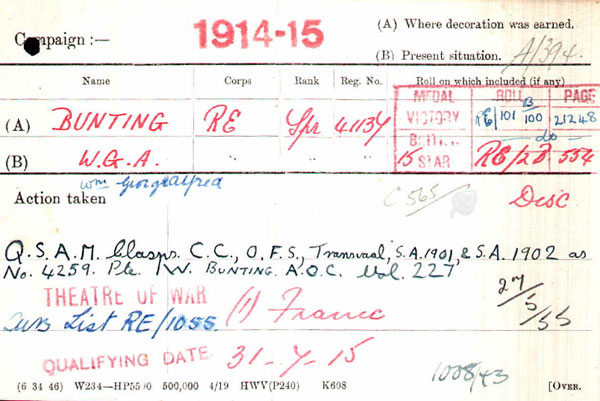 Campaign :— 1914-15 (A) Where decoration was earned.
(B) Present situation. A/394.
Name Corps Rank Reg. No. Roll on which included (if any)
MEDAL ROLL PAGE
(A) BUNTING RE Spr 41137 VICTORY RE/101 B 100 21248
BRITISH do
(B) W.G.A. " " 15 STAR RE/2B 554
Wm George Alfred
Action taken C 565/ Disc
Q.S.A.M. Clasps. C.C., O.F.S., Transvaal, S.A. 1901, & S.A. 1902 as
No. 4259. Pte. W. BUNTING. A.O.C. Vol. 227
27/5/55
THEATRE OF WAR (1) France
List RE/1055.
QUALIFYING DATE 31-7-15
1008/43
(6 34 46) W234—HP5590 500,000 4/19 HWV(P240) K608 [OVER.